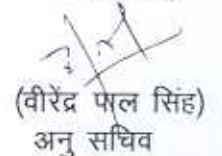 (वीरेंद्र पाल सिंह)
अनु सचिव